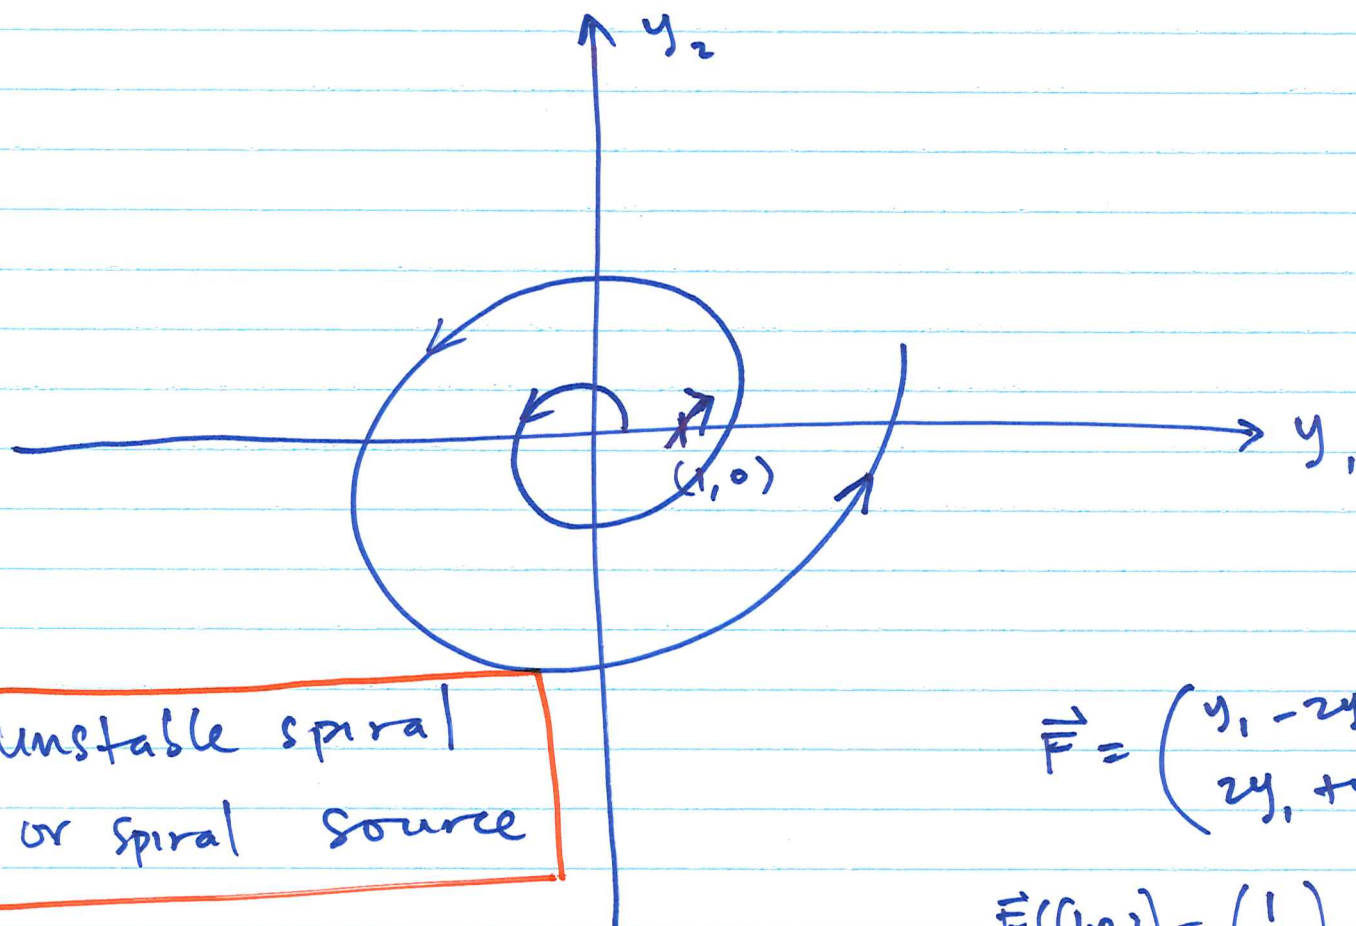 y₂
y₁
(1,0)
unstable spiral
or spiral source
F⃗ = ( y₁ - 2y
2y₁ +
F⃗((1,0)) = ( 1 )